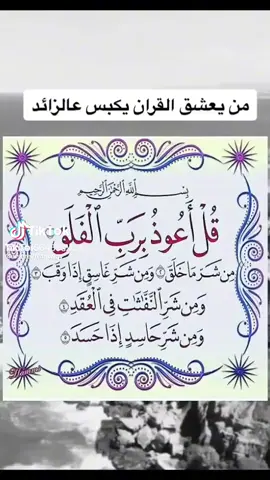 من يعشق القران يكبس عالزائد
بِسْمِ اللَّهِ الرَّحْمَٰنِ الرَّحِيمِ
قُلْ أَعُوذُ بِرَبِّ الْفَلَقِ
مِن شَرِّ مَا خَلَقَ ٢ وَمِن شَرِّ غَاسِقٍ إِذَا وَقَبَ ٣
وَمِن شَرِّ النَّفَّٰثَٰتِ فِي الْعُقَدِ ٤
وَمِن شَرِّ حَاسِدٍ إِذَا حَسَدَ ٥
TikTok